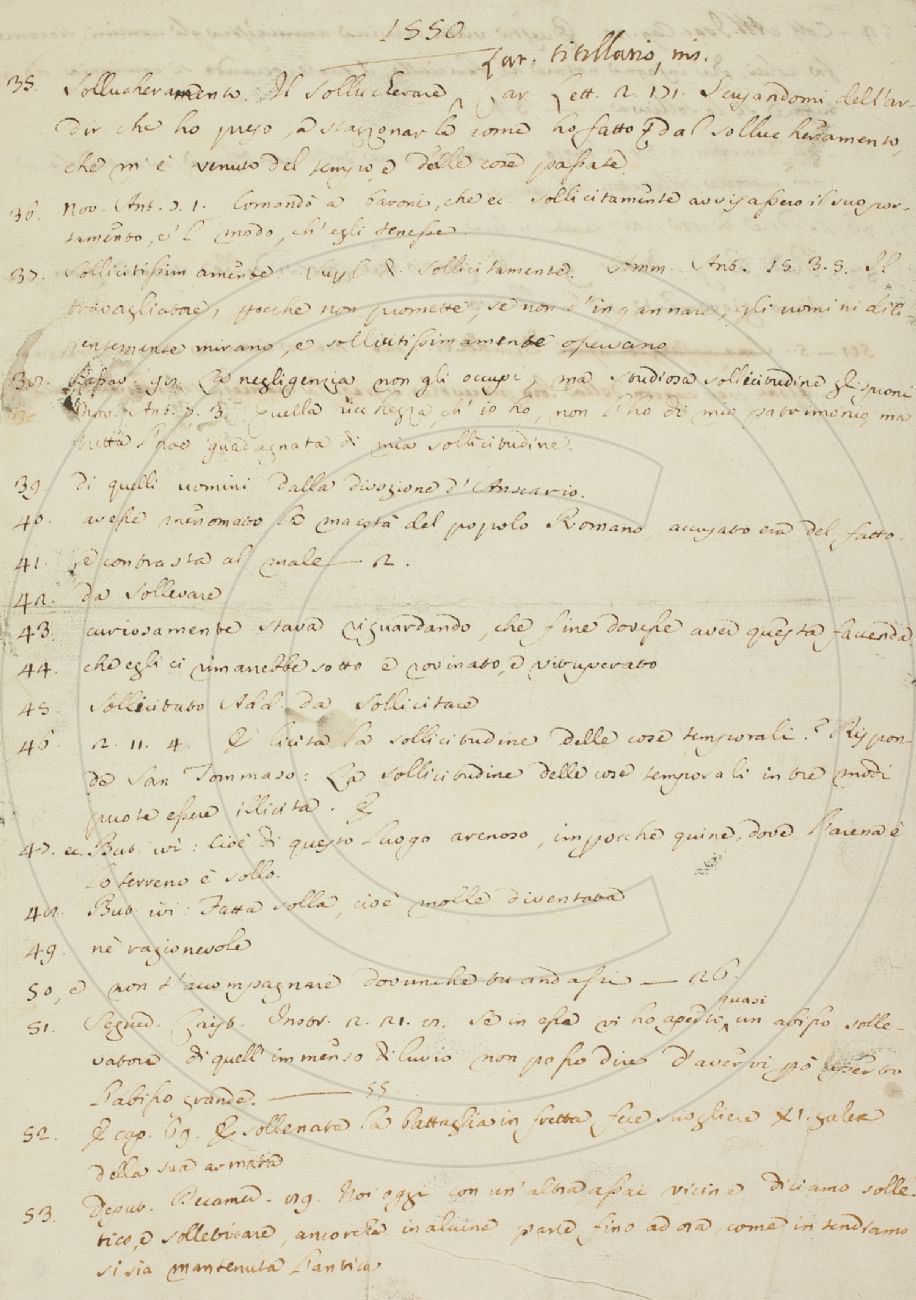 1550
Lat. titillatio, nis.
35. Sollucheramento. Il sollucherare. Car. Lett. 2. 171. Scusandomi dell'ar-
dir che ho preso, a stazzonarla come ho fatto dal sollucheramento,
che m'è venuto del tempo, e delle cose passate.
36. Nov. Ant. 2. 1. Comandò a baroni, che ec. sollicitamente avvisassero il suo por-
tamento, e'l modo, ch'egli tenesse.
37. Sollicitissimamente Superl. di Sollicitamente. Amm. Ant. 15. 3. 5. Il
travagliatore, perocchè non promette, se non d'ingannare, gli uomini dili-
gentemente mirano, e sollicitissimamente osservano
38. Passav. 98. La negligenzia non gli occupi, ma studiosa sollicitudine gli sproni
Nov. Ant. 7. 3. Quella ricchezza, ch'io ho, non l'ho di mio patrimonio, ma
tutta l'hoe guadagnata di mia sollicitudine.
39. di quelli uomini dalla divozione d'Anscario.
40. avesse menomato la maestà del popolo Romano, accusato era del fatto.
41. e contrasta al male — 2.
42. da sollevare
43. curiosamente stava riguardando, che fine dovesse aver questa faccenda
44. che egli ci rimarrebbe sotto e rovinato, e vituperato
45. Sollicitato Add. da Sollicitare
46. 2. 11. 4. È licita la sollicitudine delle cose temporali? Rispon-
de San Tommaso: La sollicitudine delle cose temporali in tre modi
puote essere illicita.
47. ec. But. ivi: Cioè di questo luogo arenoso, imperchè quine, dove l'arena è
lo terreno è sollo.
48. But. ivi: Fatta solla, cioè molle diventata
49. nè ragionevole
50. e non t'accompagnare dovunche tu andassi — 26.
51. Segner. Crist. Instr. 2. 21. 8. Se in essa vi ho aperto quasi un abisso solle-
vatore di quell'immenso diluvio non posso dire d'avervi però aperto
l'abisso grande. — 55.
52. E cap. 69. E sollenata la battaglia in fretta fece sciogliere XI. galee
della sua armata
53. Deput. Decamer. 89. Noi oggi con un'altra assai vicina diciamo solle-
tico, e solleticare, ancorchè in alcune parte fino ad ora, come intendiamo
si sia mantenuta l'antica